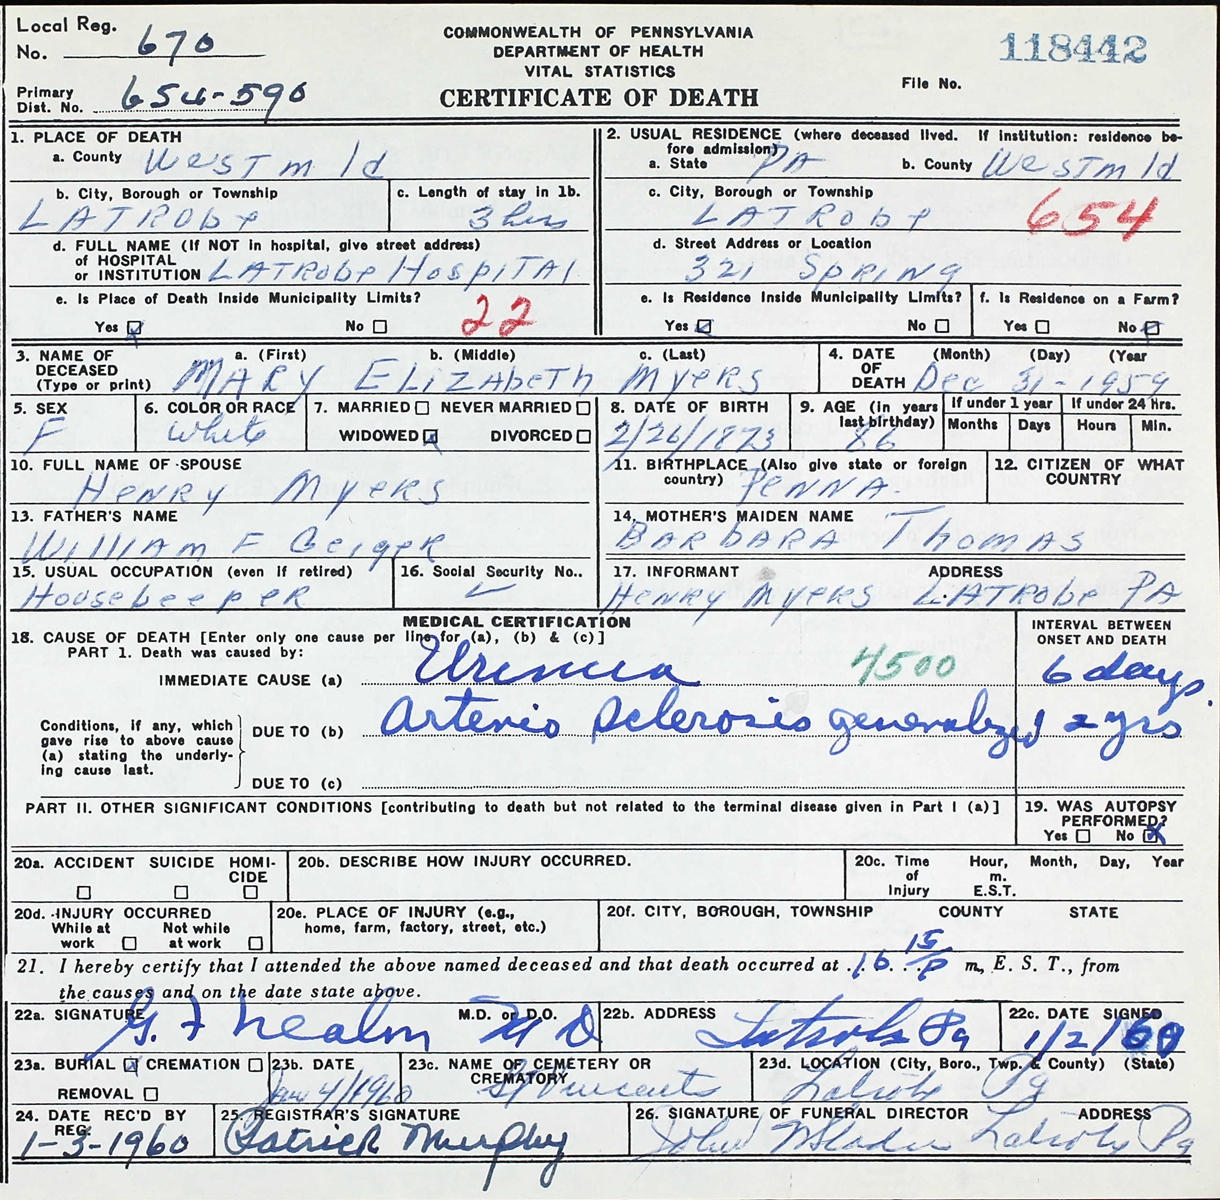 Local Reg. No. 670
COMMONWEALTH OF PENNSYLVANIA
DEPARTMENT OF HEALTH
VITAL STATISTICS
CERTIFICATE OF DEATH
118442
File No.
Primary Dist. No. 654-590
1. PLACE OF DEATH
a. County Westm ld
b. City, Borough or Township LATRObe
c. Length of stay in 1b. 3 hrs
d. FULL NAME (If NOT in hospital, give street address) of HOSPITAL or INSTITUTION LATRobe HospITAl
e. Is Place of Death Inside Municipality Limits?
Yes ☒ No ☐ 22
2. USUAL RESIDENCE (where deceased lived. If institution: residence be-
fore admission)
a. State PA b. County Westm ld
c. City, Borough or Township LATRobe 654
d. Street Address or Location
321 SPRING
e. Is Residence Inside Municipality Limits?
Yes ☑ No ☐
f. Is Residence on a Farm?
Yes ☐ No ☑
3. NAME OF DECEASED (Type or print) a. (First) b. (Middle) c. (Last)
MARY ElizAbeTh Myers
4. DATE OF DEATH (Month) (Day) (Year
Dec 31-1959
5. SEX F
6. COLOR OR RACE White
7. MARRIED ☐ NEVER MARRIED ☐
WIDOWED ☒ DIVORCED ☐
8. DATE OF BIRTH 2/26/1873
9. AGE (in years last birthday) 86
If under 1 year Months Days
If under 24 Hrs. Hours Min.
10. FULL NAME OF SPOUSE
Henry Myers
11. BIRTHPLACE (Also give state or foreign country) PENNA.
12. CITIZEN OF WHAT COUNTRY
13. FATHER'S NAME
William F Geiger
14. MOTHER'S MAIDEN NAME
BARbARA Thomas
15. USUAL OCCUPATION (even if retired)
Housekeeper
16. Social Security No..
17. INFORMANT ADDRESS
Henry Myers LATRobe PA
MEDICAL CERTIFICATION
18. CAUSE OF DEATH [Enter only one cause per line for (a), (b) & (c)]
INTERVAL BETWEEN ONSET AND DEATH
PART 1. Death was caused by:
IMMEDIATE CAUSE (a) Uremia 4500 6 days
Conditions, if any, which gave rise to above cause (a) stating the underly-ing cause last.
DUE TO (b) Arterio Sclerosis generalized 2 yrs
DUE TO (c)
PART II. OTHER SIGNIFICANT CONDITIONS [contributing to death but not related to the terminal disease given in Part I (a)]
19. WAS AUTOPSY PERFORMED?
Yes ☐ No ☒
20a. ACCIDENT SUICIDE HOMI-CIDE
☐ ☐ ☐
20b. DESCRIBE HOW INJURY OCCURRED.
20c. Time of Injury Hour, m. E.S.T. Month, Day, Year
20d. INJURY OCCURRED
While at work ☐ Not while at work ☐
20e. PLACE OF INJURY (e.g., home, farm, factory, street, etc.)
20f. CITY, BOROUGH, TOWNSHIP COUNTY STATE
21. I hereby certify that I attended the above named deceased and that death occurred at 10 15 P m, E. S. T., from
the causes and on the date state above.
22a. SIGNATURE M.D. or D.O. M D
22b. ADDRESS Latrobe Pa
22c. DATE SIGNED 1/2/60
23a. BURIAL ☒ CREMATION ☐
REMOVAL ☐
23b. DATE Jan 4/1960
23c. NAME OF CEMETERY OR CREMATORY St Vincents
23d. LOCATION (City, Boro., Twp. & County) (State)
Latrobe Pa
24. DATE REC'D BY REG.
1-3-1960
25. REGISTRAR'S SIGNATURE
Patrick Murphy
26. SIGNATURE OF FUNERAL DIRECTOR ADDRESS
John Latrobe Pa